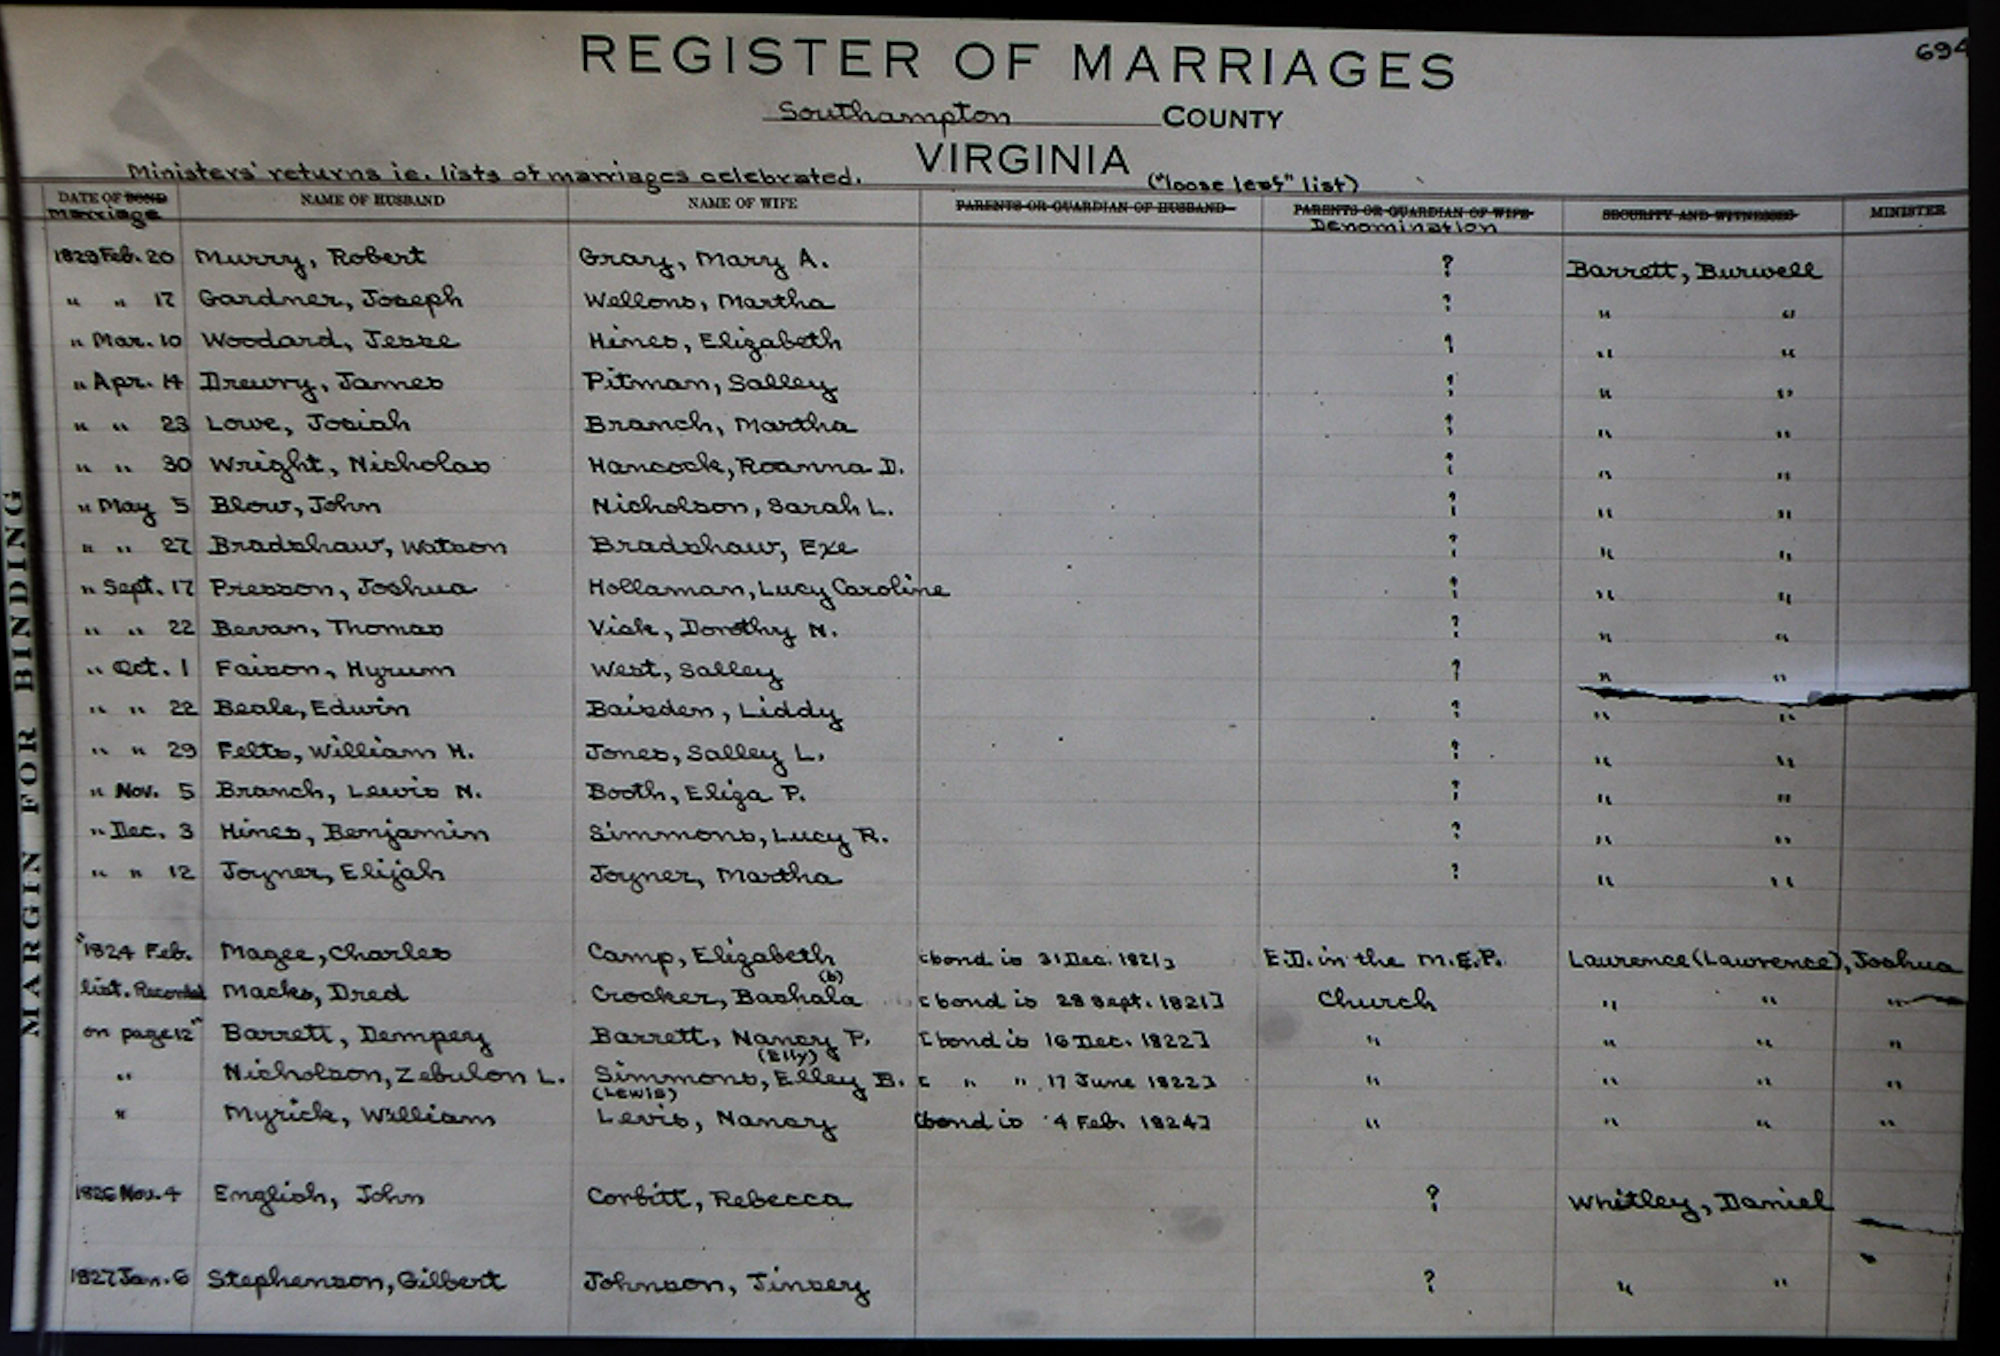 694
REGISTER OF MARRIAGES
Southampton COUNTY
VIRGINIA
Ministers' returns ie. lists of marriages celebrated. ("loose leaf" list)
DATE OF BOND NAME OF HUSBAND NAME OF WIFE PARENTS OR GUARDIAN OF HUSBAND PARENTS OR GUARDIAN OF WIFE SECURITY AND WITNESSES MINISTER
Marriage Denomination
1829 Feb. 20 Murry, Robert Gray, Mary A. ? Barrett, Burwell
" " 17 Gardner, Joseph Wellons, Martha ? " "
" Mar. 10 Woodard, Jesse Hines, Elizabeth ? " "
" Apr. 14 Drewry, James Pitman, Salley ? " "
" " 23 Lowe, Josiah Branch, Martha ? " "
" " 30 Wright, Nicholas Hancock, Roanna D. ? " "
" May 5 Blow, John Nicholson, Sarah L. ? " "
" " 27 Bradshaw, Watson Bradshaw, Exe ? " "
" Sept. 17 Presson, Joshua Hollaman, Lucy Caroline ? " "
" " 22 Bevan, Thomas Vick, Dorothy N. ? " "
" Oct. 1 Faison, Hyrum West, Salley ? " "
" " 22 Beale, Edwin Baisden, Liddy ? " "
" " 29 Felts, William H. Jones, Salley L. ? " "
" Nov. 5 Branch, Lewis N. Booth, Eliza P. ? " "
" Dec. 3 Hines, Benjamin Simmons, Lucy R. ? " "
" " 12 Joyner, Elijah Joyner, Martha ? " "
"1824 Feb. Magee, Charles Camp, Elizabeth [bond is 31 Dec. 1821] E.D. in the M.E.P. Laurence (Lawrence), Joshua
(b)
list. Recorded Macks, Dred Crocker, Bashala [bond is 28 Sept. 1821] Church " " "
on page 12" Barrett, Dempsey Barrett, Nancy P. [bond is 16 Dec. 1822] " " " "
(Elly)
" Nicholson, Zebulon L. Simmons, Elley B. [ " " 17 June 1822] " " " "
(Lewis)
" Myrick, William Levis, Nancy [bond is 4 Feb. 1824] " " " "
1826 Nov. 4 English, John Corbitt, Rebecca ? Whitley, Daniel
1827 Jan. 6 Stephenson, Gilbert Johnson, Jinsey ? " "
MARGIN FOR BINDING